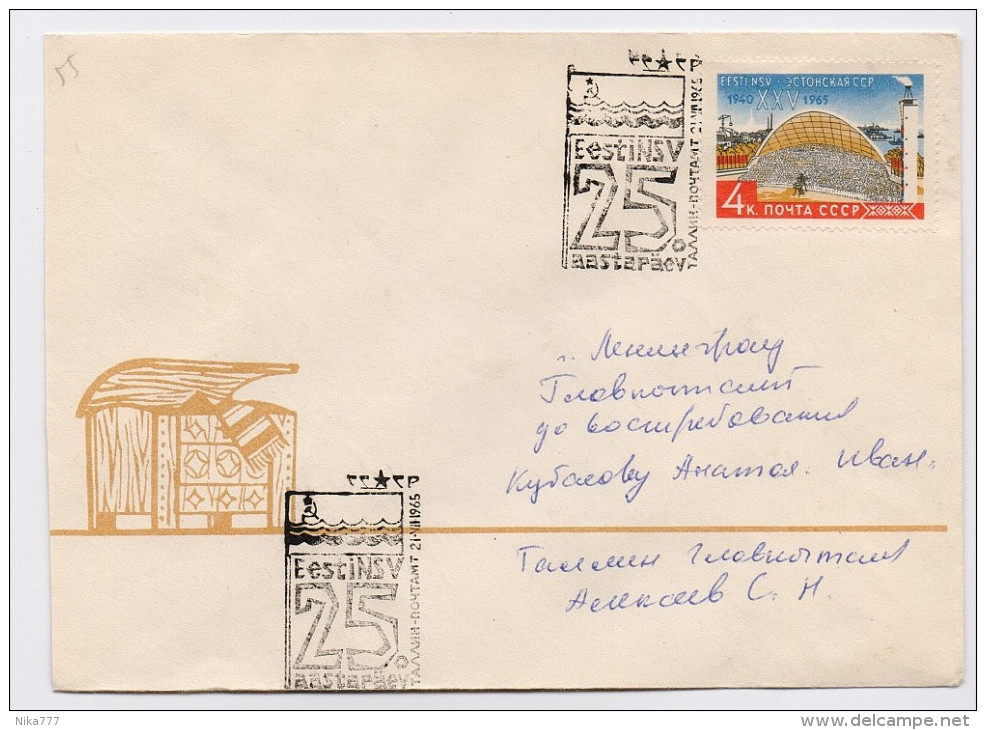 55
EESTI NSV · ЭСТОНСКАЯ ССР
1940 XXV 1965
4 К. ПОЧТА СССР
Eesti NSV
25.
aastapäev
ТАЛЛИН-ПОЧТАМТ 21·VII1965
г. Ленинград
Главпочтамт
до востребования
Кубасову Анатол. Иван.
Таллин Главпочтамт
Алексаев С. Н.
Eesti NSV
25.
aastapäev
ТАЛЛИН-ПОЧТАМТ 21·VII1965
Nika777
www.delcampe.net